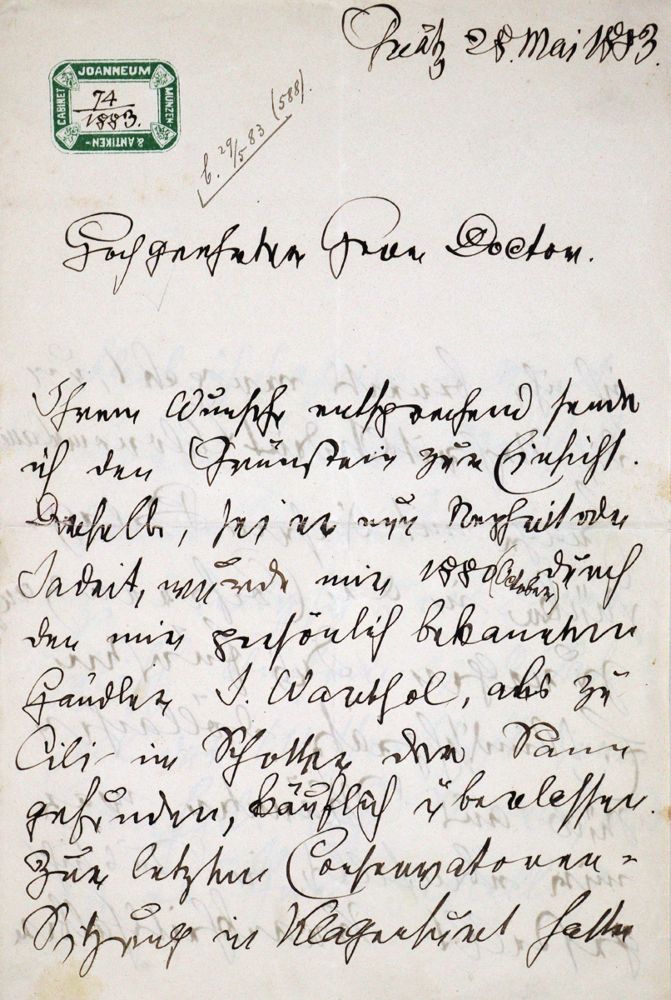 Grätz 28. Mai 1883.
JOANNEUM
CABINET
MÜNZEN-
& ANTIKEN-
74
1883.
b. 29/5 83 (588).
Hochgeehrter Herr Doctor.
Ihrem Wunsche entsprechend sende
ich den Grünstein zur Einsicht.
Derselbe, sei er nun Nephrit oder
Jadeit, wurde mir 1880 (October) durch
den mir persönlich bekannten
Händler J. Warthol, als zu
Cili im Schotter der Sann
gefunden, käuflich überlassen.
Zur letzten Conservatoren-
Sitzung in Klagenfurt hatte